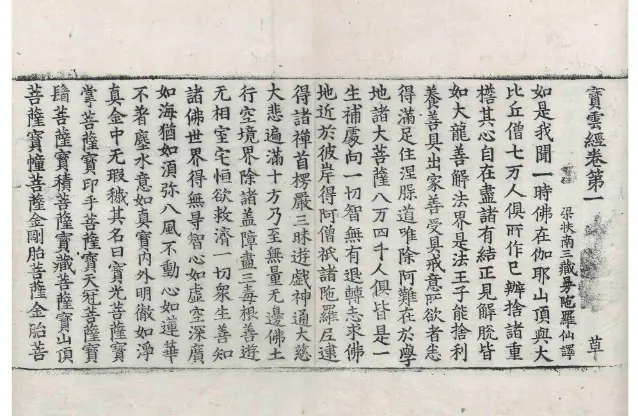 寶雲經卷第一
梁扶南三藏曼陁羅仙譯
草
如是我聞一時佛在伽耶山頂與大
比丘僧七万人俱所作已辦捨諸重
擔其心自在盡諸有結正見解脫皆
如大龍善解法界是法王子能捨利
養善具出家善受具戒意所欲者悉
得滿足住涅脲道唯除阿難在於學
地諸大菩薩八万四千人俱皆是一
生補處向一切智無有退轉志求佛
地近於彼岸得阿僧祇諸陁羅尼逮
得諸禅首楞嚴三昧遊戯神通大慈
大悲遍滿十方乃至無量无邊佛土
行空境界除諸盖障盡三毒根善遊
无相室宅恒欲救濟一切衆生善知
諸佛世界得無㝵智心如虛空深廣
如海猶如湏弥八風不動心如蓮華
不著塵水意如真寶內外明徹如淨
真金中无瑕穢其名曰寶光菩薩寶
掌菩薩寶印手菩薩寶天冠菩薩寶
髻菩薩寶積菩薩寶藏菩薩寶山頂
菩薩寶幢菩薩金剛胎菩薩金胎菩